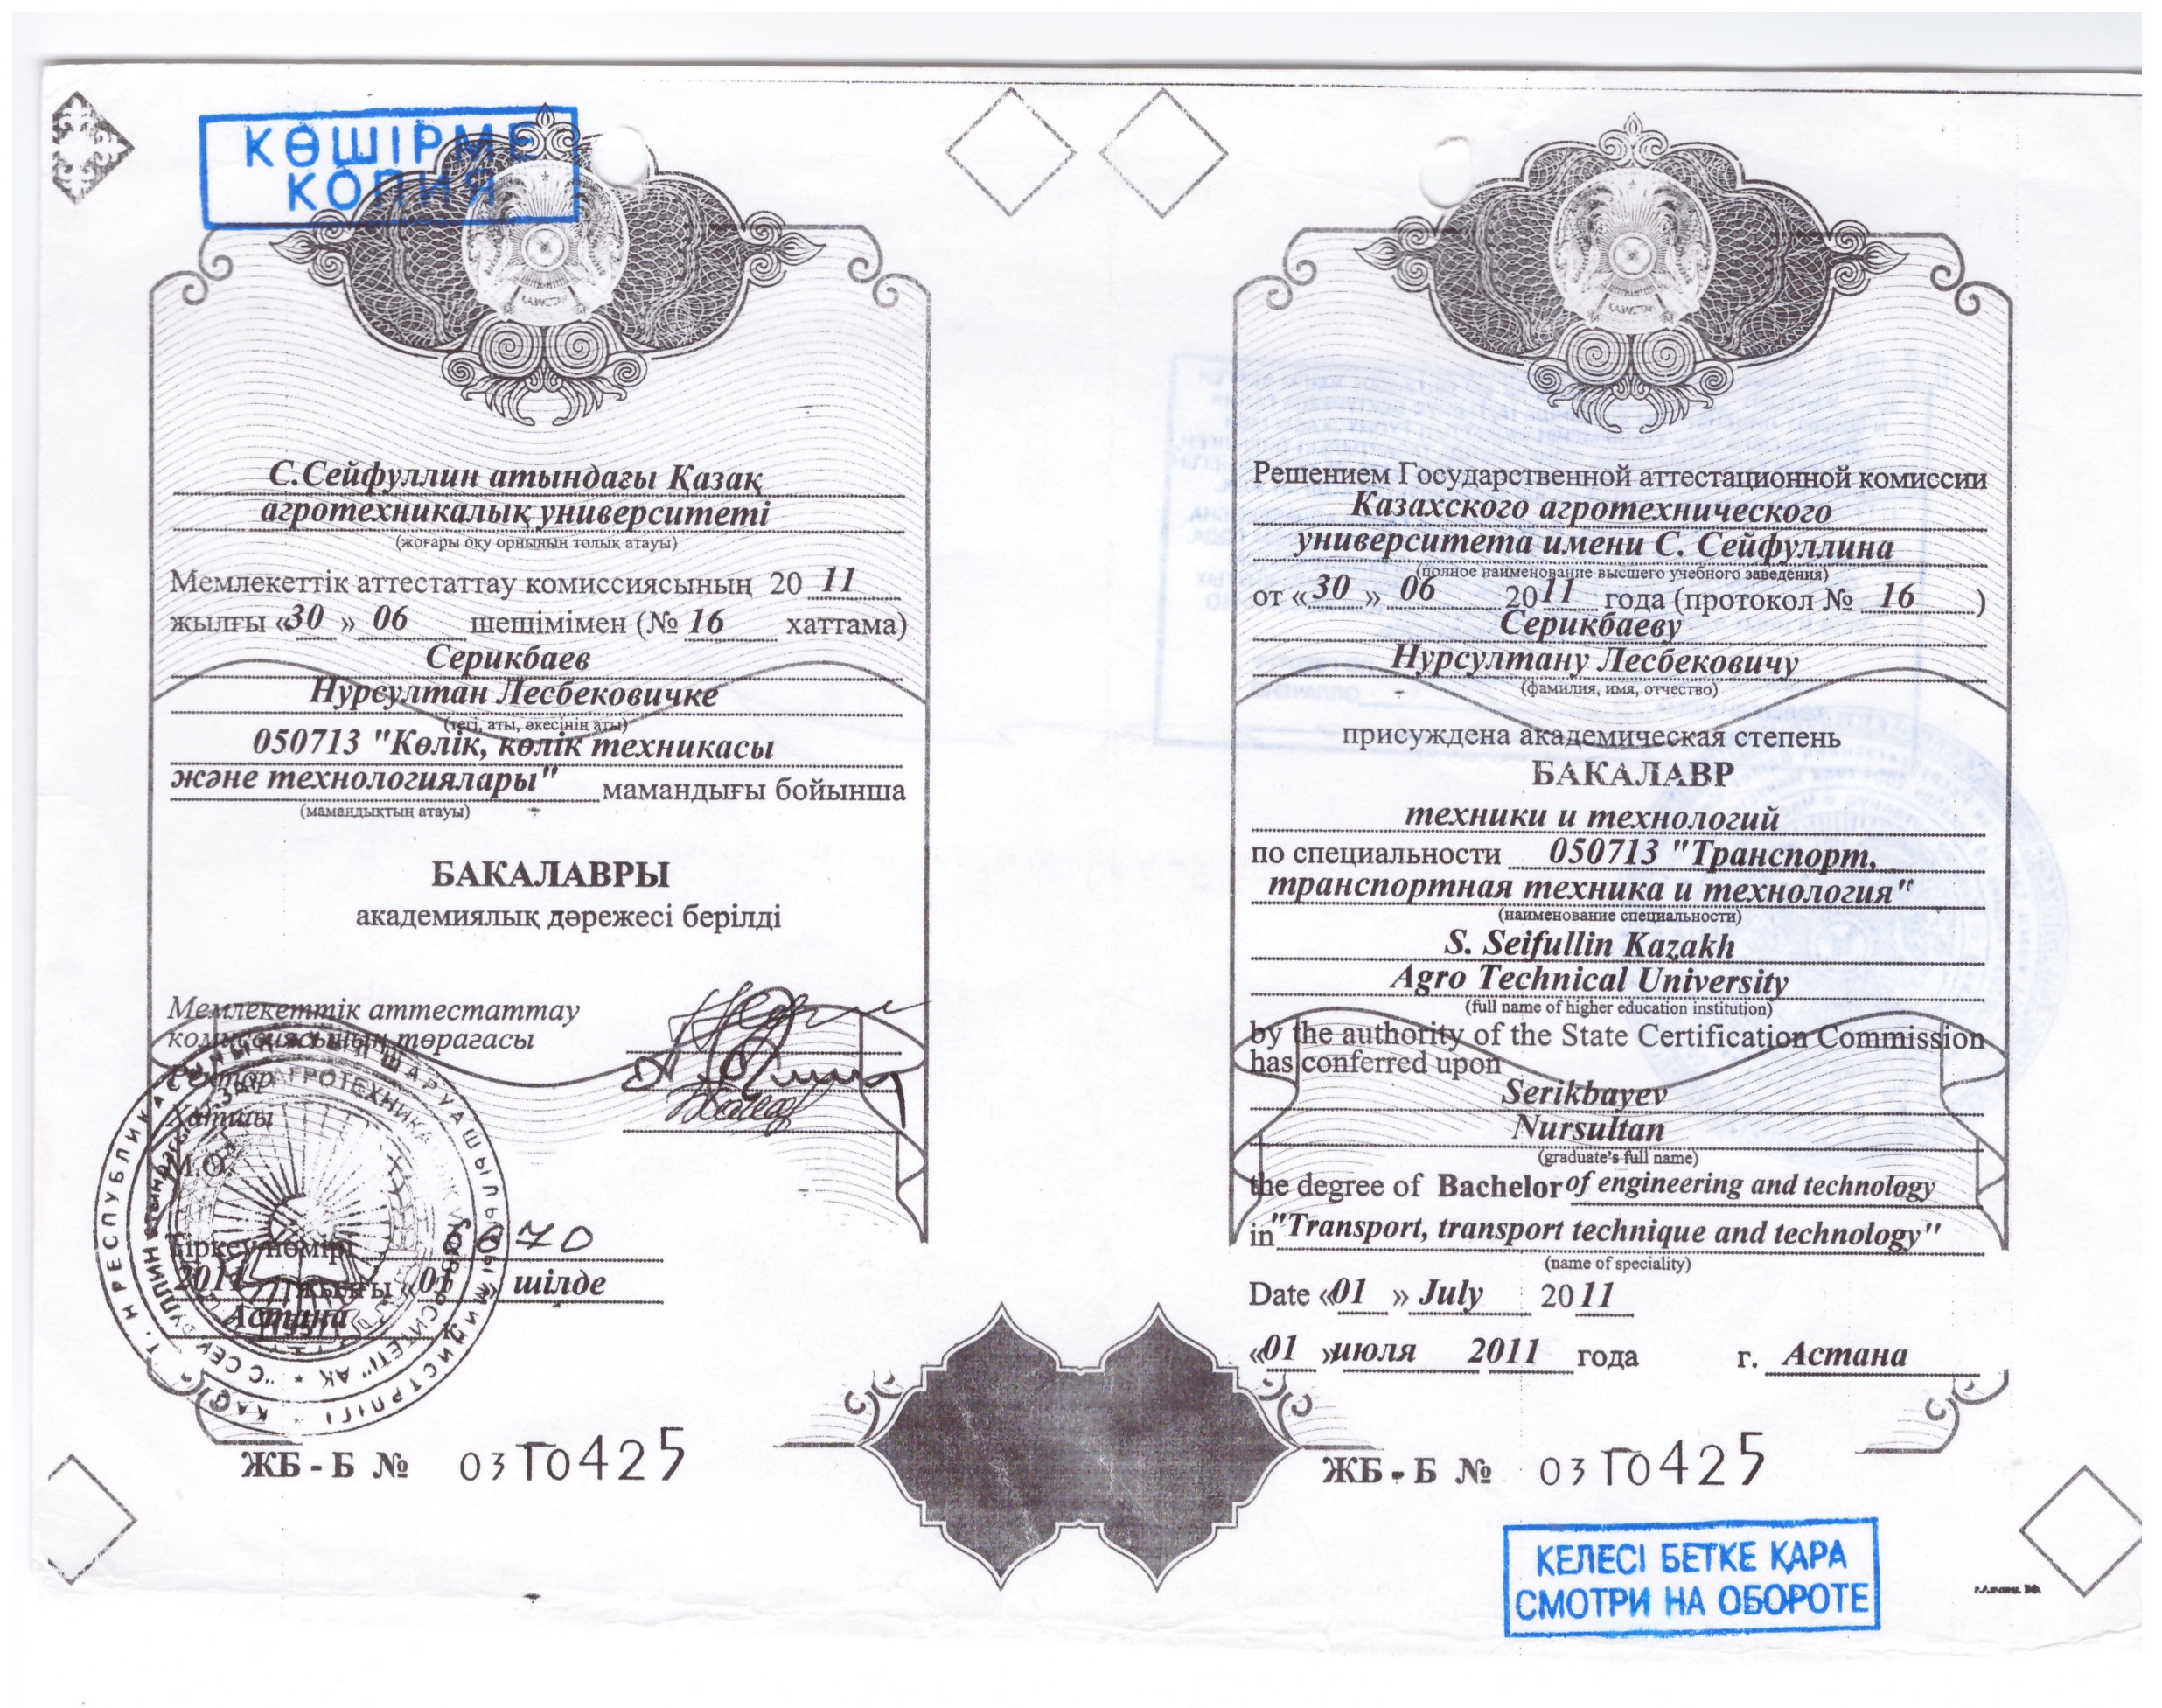 КӨШІРМЕ
КОПИЯ
ҚАЗАҚСТАН
С.Сейфуллин атындағы Қазақ
агротехникалық университеті
(жоғары оқу орнының толық атауы)
Мемлекеттік аттестаттау комиссиясының 20 11
жылғы «30 » 06 шешімімен (№ 16 хаттама)
Серикбаев
Нурсултан Лесбековичке
(тегі, аты, әкесінің аты)
050713 "Көлік, көлік техникасы
және технологиялары" мамандығы бойынша
(мамандықтың атауы)
БАКАЛАВРЫ
академиялық дәрежесі берілді
Мемлекеттік аттестаттау
комиссиясының төрағасы
Ректор
Хатшы
М.О.
Тіркеу нөмірі 6670
2011 жылғы «01 » шілде
Астана қ.
ЖБ - Б № 03Т0425
ҚАЗАҚСТАН
Решением Государственной аттестационной комиссии
Казахского агротехнического
университета имени С. Сейфуллина
(полное наименование высшего учебного заведения)
от « 30 » 06 2011 года (протокол № 16 )
Серикбаеву
Нурсултану Лесбековичу
(фамилия, имя, отчество)
присуждена академическая степень
БАКАЛАВР
техники и технологий
по специальности 050713 "Транспорт,
транспортная техника и технология"
(наименование специальности)
S. Seifullin Kazakh
Agro Technical University
(full name of higher education institution)
by the authority of the State Certification Commission
has conferred upon
Serikbayev
Nursultan
(graduate's full name)
the degree of Bachelor of engineering and technology
in "Transport, transport technique and technology"
(name of speciality)
Date «01 » July 20 11
«01 » июля 2011 года г. Астана
ЖБ - Б № 03Т0425
КЕЛЕСІ БЕТКЕ ҚАРА
СМОТРИ НА ОБОРОТЕ